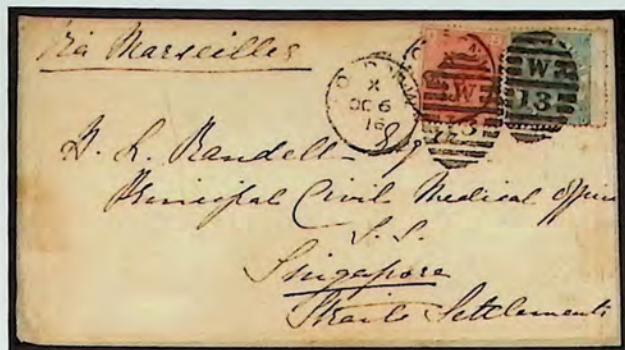 Via Marseilles
LONDON.W
X
OC 6
W
13
W
13
H. L. Randell Esq
Principal Civil Medical Officer
S.S.
Singapore
Straits Settlements